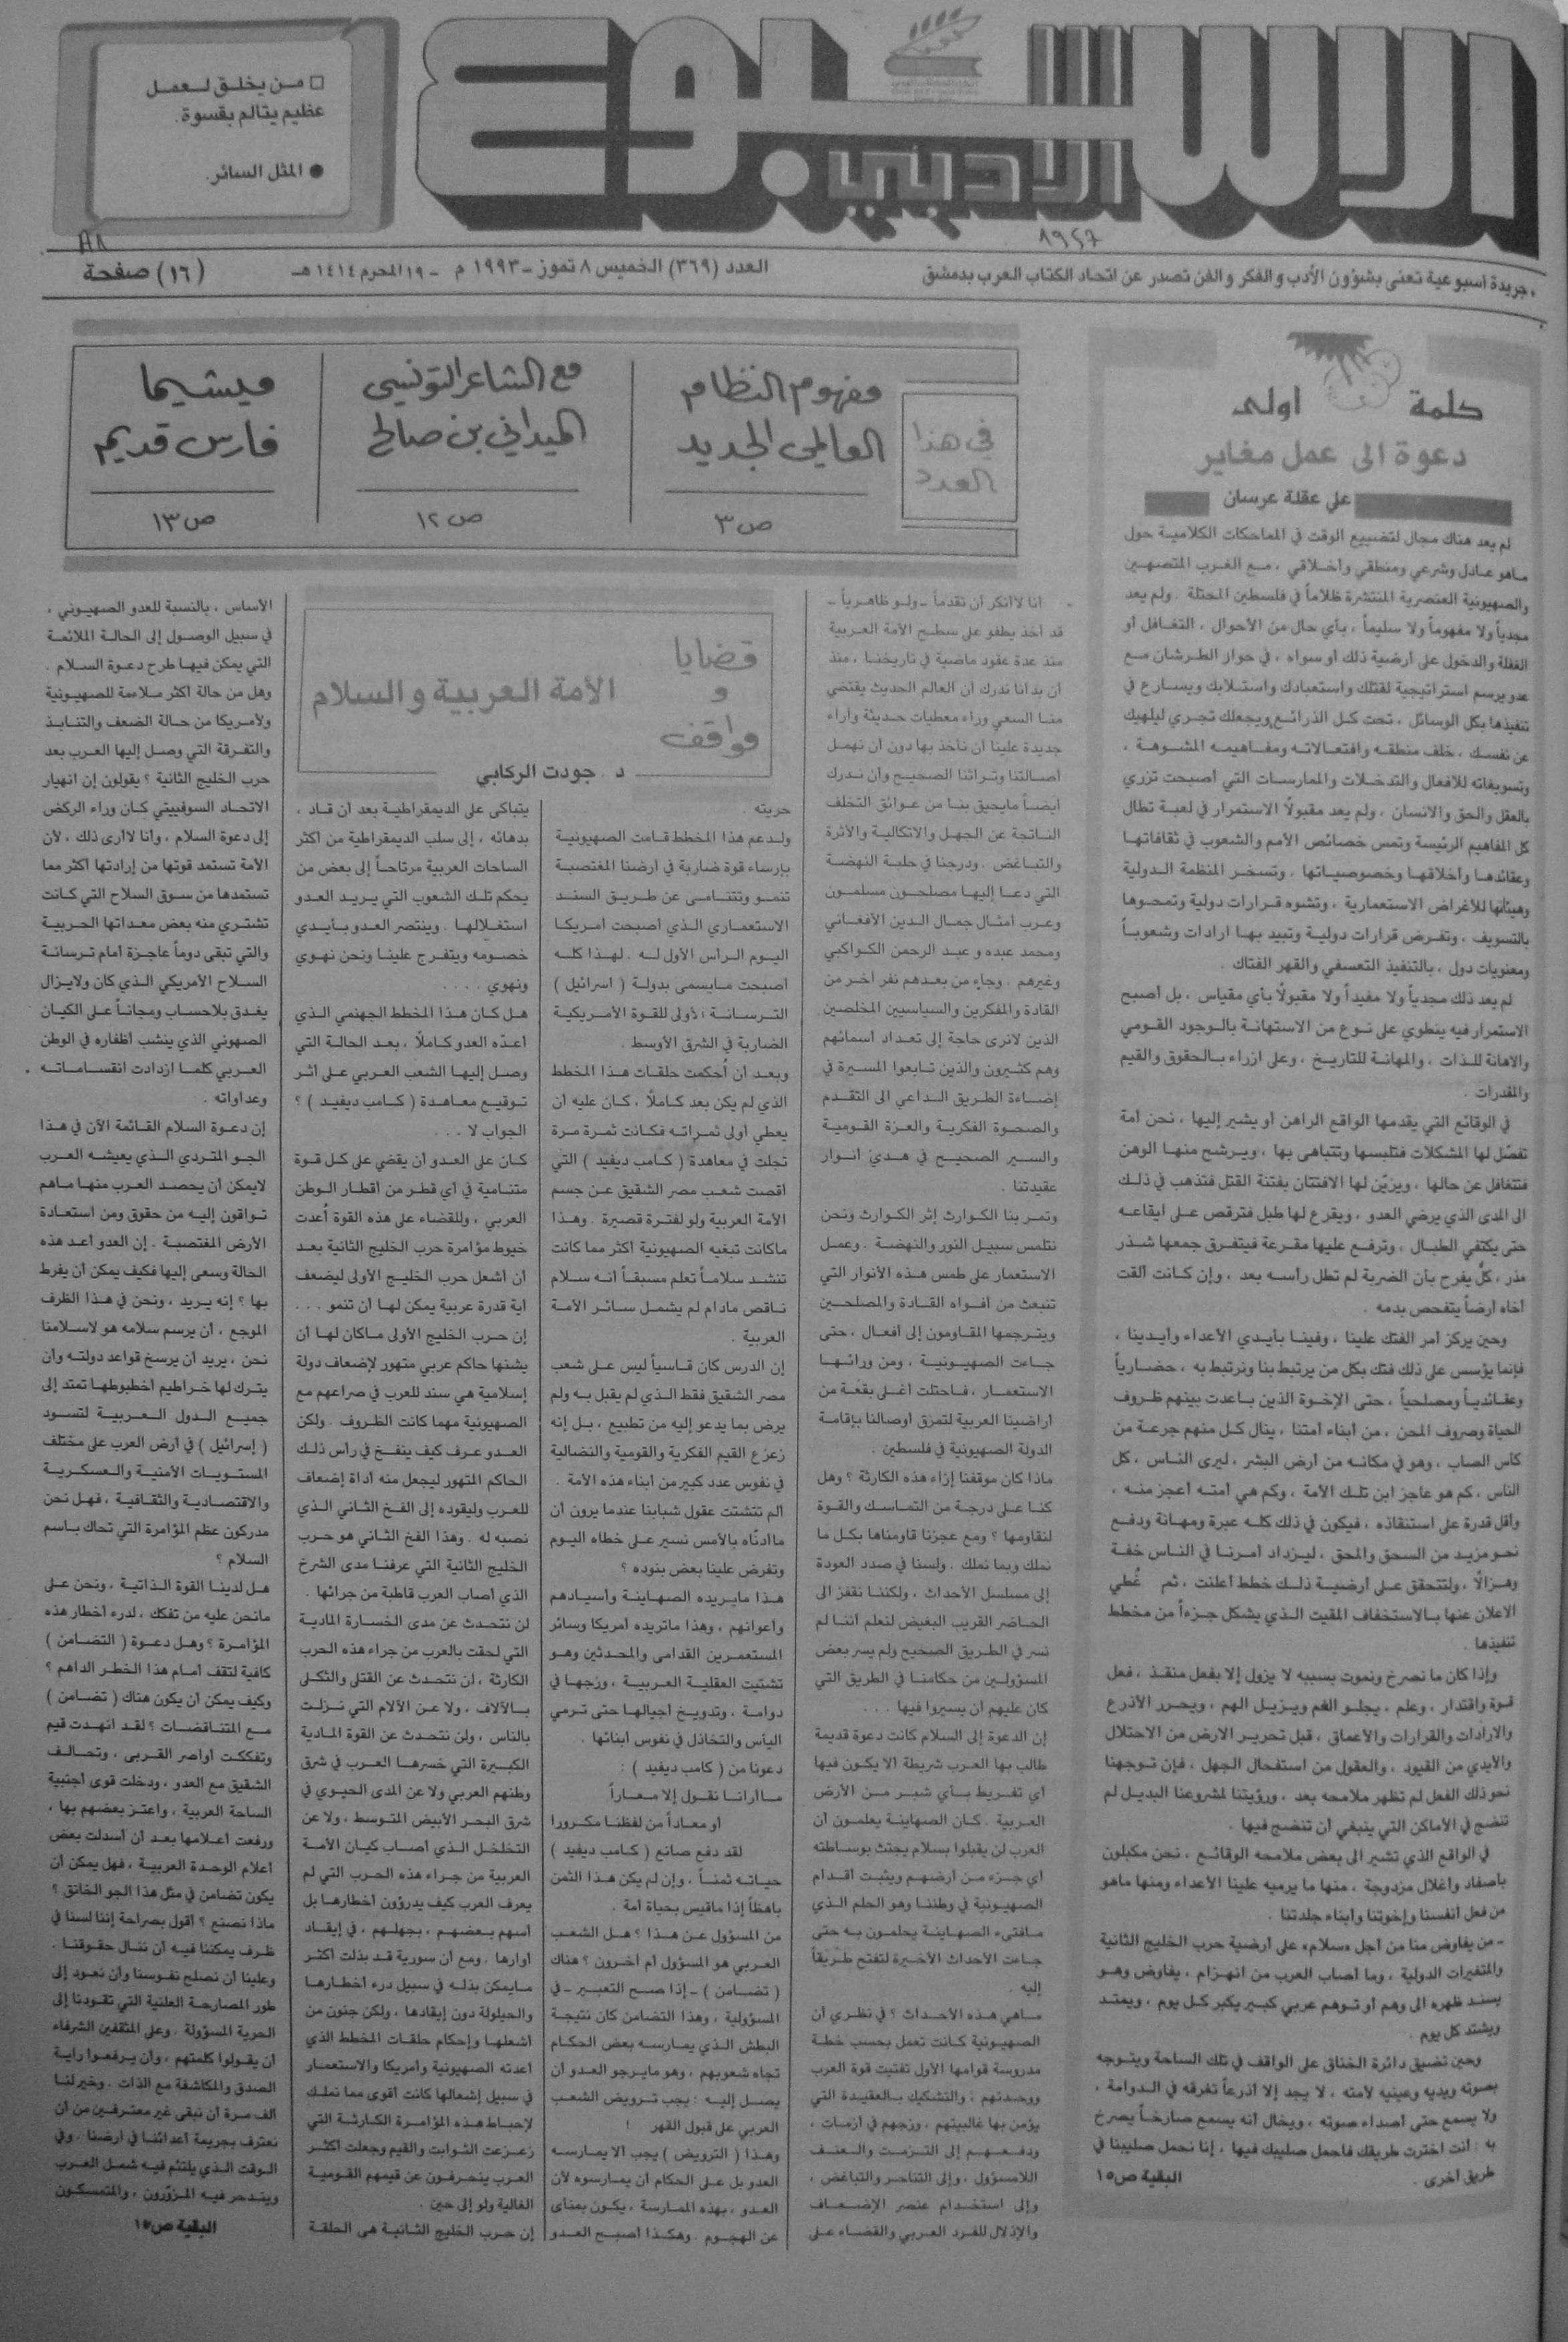 الأسبوع
الأدبي
□ مـن يخلـق لـعمـل
عظيم يتألم بقسوة.
● المثل السائر.
١٩٢٧
جريدة أسبوعية تعنى بشؤون الأدب والفكر والفن تصدر عن اتحاد الكتاب العرب بدمشق
العدد (٣٦٩) الخميس ٨ تموز - ١٩٩٣ م - ١٩ المحرم ١٤١٤ هـ
(١٦) صفحة
في هذا
العدد
مفهوم النظام
العالمي الجديد
ص ٣
مع الشاعر التونسي
الميداني بن صالح
ص ١٢
ميشيما
فارس قديم
ص ١٣
كلمة أولى
دعوة الى عمل مغاير
علي عقلة عرسان
لم يعد هناك مجال لتضييع الوقت في المماحكات الكلامية حول
ماهو عادل وشرعي ومنطقي وأخلاقي ، مع الغرب المتصهين
والصهيونية العنصرية المنتشرة ظلاماً في فلسطين المحتلة . ولم يعد
مجدياً ولا مفهوماً ولا سليماً ، بأي حال من الأحوال ، التغافل أو
الغفلة والدخول على أرضية ذلك أو سواه ، في حوار الطرشان مع
عدو يرسم استراتيجية لقتلك واستعبادك واستلابك ويسارع في
تنفيذها بكل الوسائل ، تحت كل الذرائع ويجعلك تجري ليلهيك
عن نفسك ، خلف منطقه وافتعالاته ومفاهيمه المشوهة ،
وتسويغاته للأفعال والتدخلات والممارسات التي أصبحت تزري
بالعقل والحق والانسان ، ولم يعد مقبولاً الاستمرار في لعبة تطال
كل المفاهيم الرئيسة وتمس خصائص الأمم والشعوب في ثقافاتها
وعقائدها وأخلاقها وخصوصياتها ، وتسخر المنظمة الدولية
وهيئاتها للأغراض الاستعمارية ، وتشوه قرارات دولية وتمحوها
بالتسويف ، وتفرض قرارات دولية وتبيد بها ارادات وشعوباً
ومعنويات دول ، بالتنفيذ التعسفي والقهر الفتاك .
لم يعد ذلك مجدياً ولا مفيداً ولا مقبولاً بأي مقياس ، بل أصبح
الاستمرار فيه ينطوي على نوع من الاستهانة بالوجود القومي
والاهانة للذات ، والمهانة للتاريخ ، وعلى ازراء بالحقوق والقيم
والمقدرات .
في الوقائع التي يقدمها الواقع الراهن أو يشير إليها ، نحن أمة
تفصّل لها المشكلات فتلبسها وتتباهى بها ، ويرشح منها الوهن
فتتغافل عن حالها ، ويزيّن لها الافتتان بفتنة القتل فتذهب في ذلك
الى المدى الذي يرضي العدو ، ويقرع لها طبل فترقص على ايقاعه
حتى يكتفي الطبال ، وترفع عليها مقرعة فيتفرق جمعها شذر
مذر ، كلٌّ يفرح بأن الضربة لم تطل رأسه بعد ، وإن كانت ألقت
أخاه أرضاً يتفحص بدمه .
وحين يركز أمر الفتك علينا ، وفينا بأيدي الأعداء وأيدينا ،
فإنما يؤسس على ذلك فتك بكل من يرتبط بنا ونرتبط به ، حضارياً
وعقائدياً ومصلحياً ، حتى الإخوة الذين باعدت بينهم ظروف
الحياة وصروف المحن ، من أبناء أمتنا ، ينال كل منهم جرعة من
كأس الصاب ، وهو في مكانه من أرض البشر ، ليرى الناس ، كل
الناس ، كم هو عاجز ابن تلك الأمة ، وكم هي أمته أعجز منه ،
وأقل قدرة على استنقاذه ، فيكون في ذلك كله عبرة ومهانة ودفع
نحو مزيد من السحق والمحق ، ليزداد أمرنا في الناس خفة
وهزالًا ، ولتتحقق على أرضية ذلك خطط أعلنت ، ثم غُطي
الاعلان عنها بالاستخفاف المقيت الذي يشكل جزءاً من مخطط
تنفيذها .
وإذا كان ما نصرخ ونموت بسببه لا يزول إلا بفعل منقذ ، فعل
قوة واقتدار ، وعلم ، يجلو الغم ويزيل الهم ، ويحرر الأذرع
والارادات والقرارات والأعماق ، قبل تحرير الأرض من الاحتلال
والأيدي من القيود ، والعقول من استفحال الجهل ، فإن توجهنا
نحو ذلك الفعل لم تظهر ملامحه بعد ، ورؤيتنا لمشروعنا البديل لم
تنضج في الأماكن التي ينبغي أن تنضج فيها .
في الواقع الذي تشير الى بعض ملامحه الوقائع ، نحن مكبلون
بأصفاد وأغلال مزدوجة ، منها ما يرميه علينا الأعداء ومنها ماهو
من فعل أنفسنا وإخوتنا وأبناء جلدتنا .
- من يفاوض منا من أجل «سلام» على أرضية حرب الخليج الثانية
والمتغيرات الدولية ، وما أصاب العرب من انهزام ، يفاوض وهو
يسند ظهره الى وهم أو توهم عربي كبير يكبر كل يوم ، ويمتد
ويشتد كل يوم .
وحين تضيق دائرة الخناق على الواقف في تلك الساحة ويتوجه
بصوته ويديه وعينيه لأمته ، لا يجد إلا أذرعاً تغرقه في الدوامة ،
ولا يسمع حتى أصداء صوته ، ويخال أنه يسمع صارخاً يصرخ
به : أنت اخترت طريقك فاحمل صليبك فيها ، إنا نحمل صليبنا في
طريق أخرى .
البقية ص ١٥
قضايا
و
مواقف
الأمة العربية والسلام
د . جودت الركابي
أنا لا أنكر أن تقدماً - ولو ظاهرياً -
قد أخذ يطفو على سطح الأمة العربية
منذ عدة عقود ماضية في تاريخنا ، منذ
أن بدأنا ندرك أن العالم الحديث يقتضي
منا السعي وراء معطيات حديثة وآراء
جديدة علينا أن نأخذ بها دون أن نهمل
أصالتنا وتراثنا الصحيح وأن ندرك
أيضاً مايحيق بنا من عوائق التخلف
الناتجة عن الجهل والاتكالية والأثرة
والتباغض . ودرجنا في حلبة النهضة
التي دعا إليها مصلحون مسلمون
وعرب أمثال جمال الدين الأفغاني
ومحمد عبده وعبد الرحمن الكواكبي
وغيرهم . وجاء من بعدهم نفر آخر من
القادة والمفكرين والسياسيين المخلصين
الذين لانرى حاجة إلى تعداد أسمائهم
وهم كثيرون والذين تابعوا المسيرة في
إضاءة الطريق الداعي الى التقدم
والصحوة الفكرية والعزة القومية
والسير الصحيح في هدي أنوار
عقيدتنا .
وتمر بنا الكوارث إثر الكوارث ونحن
نتلمس سبيل النور والنهضة . وعمل
الاستعمار على طمس هذه الأنوار التي
تنبعث من أفواه القادة والمصلحين
ويترجمها المقاومون إلى أفعال ، حتى
جاءت الصهيونية ، ومن ورائها
الاستعمار ، فاحتلت أغلى بقعة من
أراضينا العربية لتمزق أوصالنا بإقامة
الدولة الصهيونية في فلسطين .
ماذا كان موقفنا إزاء هذه الكارثة ؟ وهل
كنا على درجة من التماسك والقوة
لنقاومها ؟ ومع عجزنا قاومناها بكل ما
نملك وبما نملك . ولسنا في صدد العودة
إلى مسلسل الأحداث ، ولكننا نقفز الى
الحاضر القريب البغيض لنعلم أننا لم
نسر في الطريق الصحيح ولم يسر بعض
المسؤولين من حكامنا في الطريق التي
كان عليهم أن يسيروا فيها . . .
إن الدعوة إلى السلام كانت دعوة قديمة
طالب بها العرب شريطة ألا يكون فيها
أي تفريط بأي شبر من الأرض
العربية . كان الصهاينة يعلمون أن
العرب لن يقبلوا بسلام يجتث بوساطته
أي جزء من أرضهم ويثبت أقدام
الصهيونية في وطننا وهو الحلم الذي
مافتىء الصهاينة يحلمون به حتى
جاءت الأحداث الأخيرة لتفتح طريقاً
إليه .
ماهي هذه الأحداث ؟ في نظري أن
الصهيونية كانت تعمل بحسب خطة
مدروسة قوامها الأول تفتيت قوة العرب
ووحدتهم ، والتشكيك بالعقيدة التي
يؤمن بها غالبيتهم ، وزجهم في أزمات ،
ودفعهم إلى التزمت والعنف
اللامسؤول ، وإلى التناحر والتباغض ،
وإلى استخدام عنصر الإضعاف
والإذلال للفرد العربي والقضاء على
حريته .
ولدعم هذا المخطط قامت الصهيونية
بإرساء قوة ضاربة في أرضنا المغتصبة
تنمو وتتنامى عن طريق السند
الاستعماري الذي أصبحت أمريكا
اليوم الرأس الأول له . لهذا كله
أصبحت مايسمى بدولة ( اسرائيل )
الترسانة الأولى للقوة الأمريكية
الضاربة في الشرق الأوسط .
وبعد أن أُحكمت حلقات هذا المخطط
الذي لم يكن بعد كاملاً ، كان عليه أن
يعطي أولى ثمراته فكانت ثمرة مرة
تجلت في معاهدة ( كامب ديفيد ) التي
أقصت شعب مصر الشقيق عن جسم
الأمة العربية ولو لفترة قصيرة . وهذا
ماكانت تبغيه الصهيونية أكثر مما كانت
تنشد سلاماً تعلم مسبقاً أنه سلام
ناقص مادام لم يشمل سائر الأمة
العربية .
إن الدرس كان قاسياً ليس على شعب
مصر الشقيق فقط الذي لم يقبل به ولم
يرض بما يدعو إليه من تطبيع ، بل إنه
زعزع القيم الفكرية والقومية والنضالية
في نفوس عدد كبير من أبناء هذه الأمة .
ألم تتشتت عقول شبابنا عندما يرون أن
ماأدنّاه بالأمس نسير على خطاه اليوم
وتفرض علينا بعض بنوده ؟
هذا مايريده الصهاينة وأسيادهم
وأعوانهم ، وهذا ماتريده أمريكا وسائر
المستعمرين القدامى والمحدثين وهو
تشتيت العقلية العربية ، وزجها في
دوامة ، وتدويخ أجيالها حتى ترمي
اليأس والتخاذل في نفوس أبنائها .
دعونا من ( كامب ديفيد ) :
ماأرانا نقول إلا معاراً
أو معاداً من لفظنا مكرورا
لقد دفع صانع ( كامب ديفيد )
حياته ثمناً ، وإن لم يكن هذا الثمن
باهظاً إذا ماقيس بحياة أمة .
من المسؤول عن هذا ؟ هل الشعب
العربي هو المسؤول أم آخرون ؟ هناك
( تضامن ) - إذا صح التعبير - في
المسؤولية ، وهذا التضامن كان نتيجة
البطش الذي يمارسه بعض الحكام
تجاه شعوبهم ، وهو مايرجو العدو أن
يصل إليه : يجب ترويض الشعب
العربي على قبول القهر !
وهذا ( الترويض ) يجب ألا يمارسه
العدو بل على الحكام أن يمارسوه لأن
العدو ، بهذه الممارسة ، يكون بمنأى
عن الهجوم . وهكذا أصبح العدو
يتباكى على الديمقراطية بعد أن قاد ،
بدهائه ، إلى سلب الديمقراطية من أكثر
الساحات العربية مرتاحاً إلى بعض من
يحكم تلك الشعوب التي يريد العدو
استغلالها . وينتصر العدو بأيدي
خصومه ويتفرج علينا ونحن نهوي
ونهوي . . . .
هل كان هذا المخطط الجهنمي الذي
أعدّه العدو كاملاً ، بعد الحالة التي
وصل إليها الشعب العربي على أثر
توقيع معاهدة ( كامب ديفيد ) ؟
الجواب لا . . .
كان على العدو أن يقضي على كل قوة
متنامية في أي قطر من أقطار الوطن
العربي ، وللقضاء على هذه القوة أُعدت
خيوط مؤامرة حرب الخليج الثانية بعد
أن أشعل حرب الخليج الأولى ليضعف
أية قدرة عربية يمكن لها أن تنمو . . .
إن حرب الخليج الأولى ماكان لها أن
يشنها حاكم عربي متهور لإضعاف دولة
إسلامية هي سند للعرب في صراعهم مع
الصهيونية مهما كانت الظروف . ولكن
العدو عرف كيف ينفخ في رأس ذلك
الحاكم المتهور ليجعل منه أداة إضعاف
للعرب وليقوده إلى الفخ الثاني الذي
نصبه له . وهذا الفخ الثاني هو حرب
الخليج الثانية التي عرفنا مدى الشرخ
الذي أصاب العرب قاطبة من جرائها .
لن نتحدث عن مدى الخسارة المادية
التي لحقت بالعرب من جراء هذه الحرب
الكارثة ، لن نتحدث عن القتلى والثكلى
بالآلاف ، ولا عن الآلام التي نزلت
بالناس ، ولن نتحدث عن القوة المادية
الكبيرة التي خسرها العرب في شرق
وطنهم العربي ولا عن المدى الحيوي في
شرق البحر الأبيض المتوسط ، ولا عن
التخلخل الذي أصاب كيان الأمة
العربية من جراء هذه الحرب التي لم
يعرف العرب كيف يدرؤون أخطارها بل
أسهم بعضهم ، بجهلهم ، في إيقاد
أوارها . ومع أن سورية قد بذلت أكثر
مايمكن بذله في سبيل درء أخطارها
والحيلولة دون إيقادها ، ولكن جنون من
أشعلها وإحكام حلقات المخطط الذي
أعدته الصهيونية وأمريكا والاستعمار
في سبيل إشعالها كانت أقوى مما نملك
لإحباط هذه المؤامرة الكارثة التي
زعزعت الثوابت والقيم وجعلت أكثر
العرب ينحرفون عن قيمهم القومية
الغالية ولو إلى حين .
إن حرب الخليج الثانية هي الحلقة
الأساس ، بالنسبة للعدو الصهيوني ،
في سبيل الوصول إلى الحالة الملائمة
التي يمكن فيها طرح دعوة السلام .
وهل من حالة أكثر ملاءمة للصهيونية
ولأمريكا من حالة الضعف والتنابذ
والتفرقة التي وصل إليها العرب بعد
حرب الخليج الثانية ؟ يقولون إن انهيار
الاتحاد السوفييتي كان وراء الركض
إلى دعوة السلام ، وأنا لاأرى ذلك ، لأن
الأمة تستمد قوتها من إرادتها أكثر مما
تستمدها من سوق السلاح التي كانت
تشتري منه بعض معداتها الحربية
والتي تبقى دوماً عاجزة أمام ترسانة
السلاح الأمريكي الذي كان ولايزال
يغدق بلاحساب ومجاناً على الكيان
الصهوني الذي ينشب أظفاره في الوطن
العربي كلما ازدادت انقساماته
وعداواته .
إن دعوة السلام القائمة الآن في هذا
الجو المتردي الذي يعيشه العرب
لايمكن أن يحصد العرب منها ماهم
تواقون إليه من حقوق ومن استعادة
الأرض المغتصبة . إن العدو أعد هذه
الحالة وسعى إليها فكيف يمكن أن يفرط
بها ؟ إنه يريد ، ونحن في هذا الظرف
الموجع ، أن يرسم سلامه هو لاسلامنا
نحن ، يريد أن يرسخ قواعد دولته وأن
يترك لها خراطيم أخطبوطها تمتد إلى
جميع الدول العربية لتسود
( إسرائيل ) في أرض العرب على مختلف
المستويات الأمنية والعسكرية
والاقتصادية والثقافية ، فهل نحن
مدركون عظم المؤامرة التي تحاك باسم
السلام ؟
هل لدينا القوة الذاتية ، ونحن على
مانحن عليه من تفكك ، لدرء أخطار هذه
المؤامرة ؟ وهل دعوة ( التضامن )
كافية لتقف أمام هذا الخطر الداهم ؟
وكيف يمكن أن يكون هناك ( تضامن )
مع المتناقضات ؟ لقد انهدت قيم
وتفككت أواصر القربى ، وتحالف
الشقيق مع العدو ، ودخلت قوى أجنبية
الساحة العربية ، واعتز بعضهم بها ،
ورفعت أعلامها بعد أن أسدلت بعض
أعلام الوحدة العربية ، فهل يمكن أن
يكون تضامن في مثل هذا الجو الخانق ؟
ماذا نصنع ؟ أقول بصراحة إننا لسنا في
ظرف يمكننا فيه أن ننال حقوقنا .
وعلينا أن نصلح نفوسنا وأن نعود إلى
طور المصارحة العلنية التي تقودنا إلى
الحرية المسؤولة . وعلى المثقفين الشرفاء
أن يقولوا كلمتهم ، وأن يرفعوا راية
الصدق والمكاشفة مع الذات . وخير لنا
ألف مرة أن نبقى غير معترفين من أن
نعترف بجريمة أعدائنا في أرضنا . وفي
الوقت الذي يلتئم فيه شمل العرب
ويندحر فيه المزوّرون ، والمتمسكون
البقية ص ١٥